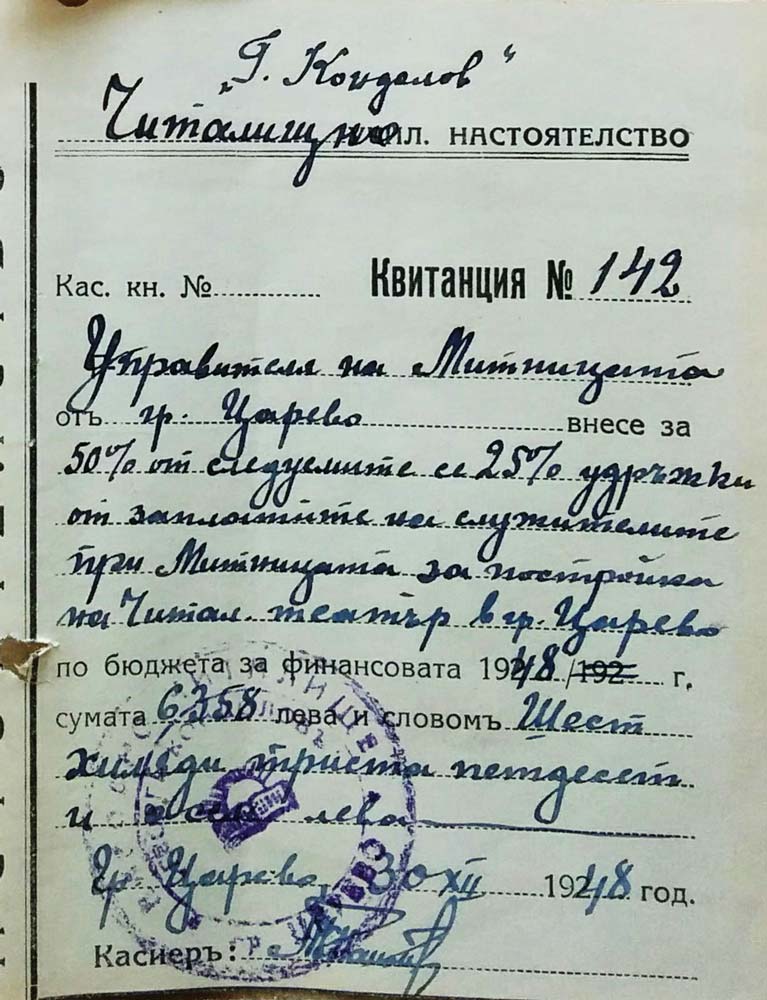 „Г. Кондолов“
Читалищно УЧИЛ. НАСТОЯТЕЛСТВО
Кас. кн. №
Квитанция № 142
Управителя на Митницата
отъ гр. Царево внесе за
50% от следуемите се 25% удръжки
от заплатите на служителите
при Митницата за постройка
на Читал. театър в гр. Царево
по бюджета за финансовата 1948/192 г.
сумата 6358 лева и словомъ Шест
хиляди триста петдесет
и осем лева
Гр. Царево, 30 XII 1948 год.
Касиеръ:
ЧИТАЛИЩЕ
гр. ЦАРЕВО